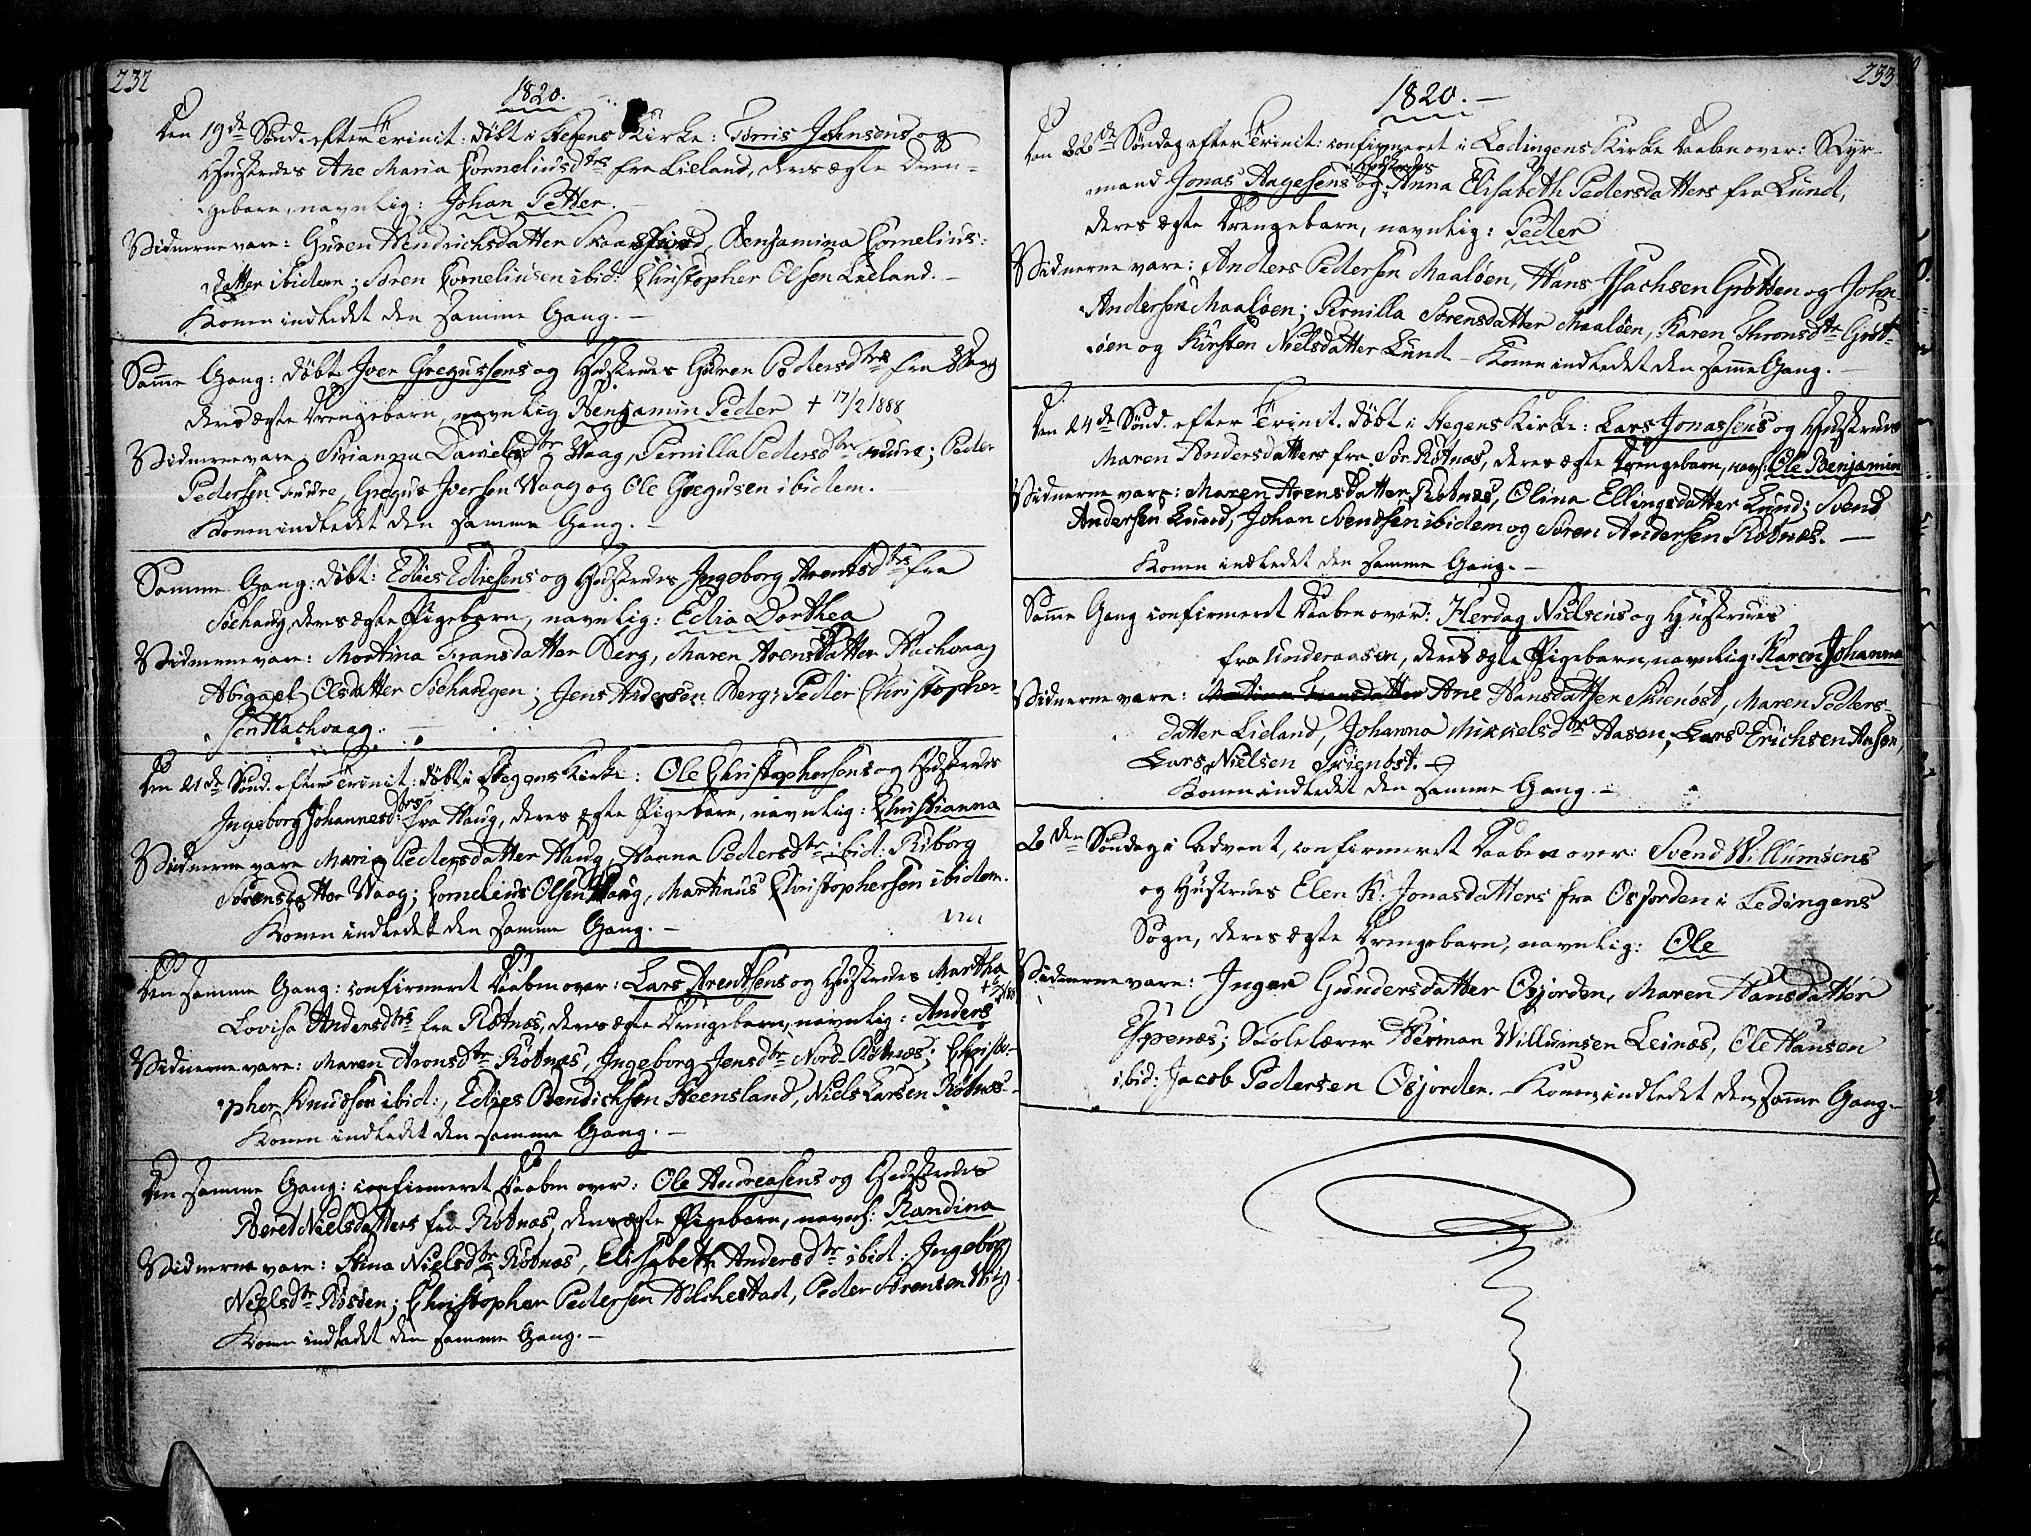 232
1820.
Den 19de Sønd. efter Trinit: døbt i Stegens Kirke: Torris Johnsens og
Hustrues Ane Maria Corneliusdtrs fra Lieland, deres ægte Dren-
gebarn, navnlig: Johan Petter.
Vidnerne vare: Guren Hendrichsdatter Skaansfiord, Benjamina Cornelius-
datter ibidem; Sören Corneliusen ibid: Christopher Olsen Lieland. —
Konen indledet den samme Gang. —
Samme Gang: døbt Iver Gregussens og Hustrues Guren Pedersdtrs fra Vaag
deres ægte Drengebarn, navnlig Benjamin Peder + 17/2 1888
Vidnerne vare: Sirianna Danielsdtr Vaag, Pernilla Pedersdtr Furre; Peder
Pedersen Furre, Gregus Iversen Vaag og Ole Gregusen ibidem.
Konen indledet den samme Gang. —
Samme Gang: døbt: Edies Ediesens og Hustrues Ingeborg Arentsdtrs fra
Söehaug, deres ægte Pigebarn, navnlig: Edia Dorthea
Vidnerne vare: Martina Fransdatter Berg, Maren Arensdatter Hachvaag
Abigael Olsdatter Söehaugen; Jens Andersen Berg; Peder Christopher-
sen Hachvaag. —
Den 21de Sønd. efter Trinit: døbt i Stegens Kirke: Ole Christophersens og Hustrues
Ingeborg Johannesdtrs fra Haug, deres ægte Pigebarn, navnlig: Christianna
Vidnerne vare Maria Pedersdatter Haug, Hanna Pedersdtr ibid: Riborg
Sörensdatter Vaag; Cornelius Olsen Haug, Martinus Christophersen ibidem.
Konen indledet den samme Gang. —
Den samme Gang: confirmeret Daaben over: Lars Arentsens og Hustrues Martha
Lovisa Andersdtrs fra Rötnæs, deres ægte Drengebarn, navnlig: Anders
Vidnerne vare: Maren Aronsdtr Rötnæs, Ingeborg Jensdtr Nord Rötnæs; Christo-
pher Knudsen ibid:, Edies Bendichsen Steensland, Niels Larsen Rötnæs. —
Konen indledet den samme Gang. —
Den samme Gang: confirmeret Daaben over: Ole Andreasens og Hustrues
Beret Nielsdatters fra Rötnæs, deres ægte Pigebarn, navnl: Randina
Vidnerne vare: Stina Nielsdtr Rötnæs, Elisabeth Andersdtr ibid: Ingeborg
Nielsdtr Rösöen; Christopher Pedersen Tilchestad, Peder Sörensen Viig
Konen indledet den samme Gang. —
233
1820. —
Den 22de Søndag efter Trinit: confirmeret i Lødingens Kirke Daaben over: Styr-
mand Jonas Aagesens og Hustrues Anna Elisabeth Pedersdatters fra Lund,
deres ægte Drengebarn, navnlig: Peder
Vidnerne vare: Anders Pedersen Maalöen, Hans Isachsen Gröttöen og John
Andersen Maalöen; Pernilla Sörensdatter Maalöen, Karen Thronsdtr Gröt-
öen og Kirsten Nielsdatter Lund. — Konen indledet den samme Gang. —
Den 24de Sønd. efter Trinit. døbt i Stegens Kirke: Lars Jonassens og Hustrues
Maren Andersdatters fra Sör Rötnæs, deres ægte Drengebarn, navnl: Ole Benjamin
Vidnerne vare: Maren Arensdatter Rötnæs, Olina Ellingsdatter Lund; Svend
Andersen Lund, Johan Svendsen ibidem og Sören Andersen Rötnæs. —
Konen indledet den samme Gang. —
Samme Gang confirmeret Daaben over: Herdag Nielsens og Hustrues
fra Underaasen, deres ægte Pigebarn, navnlig: Karen Johanna
Vidnerne vare: Martina Fransdatter Ane Hansdatter Skienöst, Maren Peders-
datter Lieland, Johanna Mikkelsdtr Aasen, Lars Erichsen Aasen,
Lars Nielsen Skienöst.
Konen indledet den samme Gang. —
2den Søndag i Advent, confirmeret Daaben over: Svend Willumsens
og Hustrues Elen K: Jonasdatters fra Osfjorden i Lødingens
Sogn, deres ægte Drengebarn, navnlig: Ole
Vidnerne vare: Inger Gundersdatter Osjorden, Maren Hansdatter
Espenæs; Skolelærer Herman Willumsen Leinæs, Ole Hansen
ibid: Jacob Pedersen Osjorden. — Konen indledet den samme Gang. —